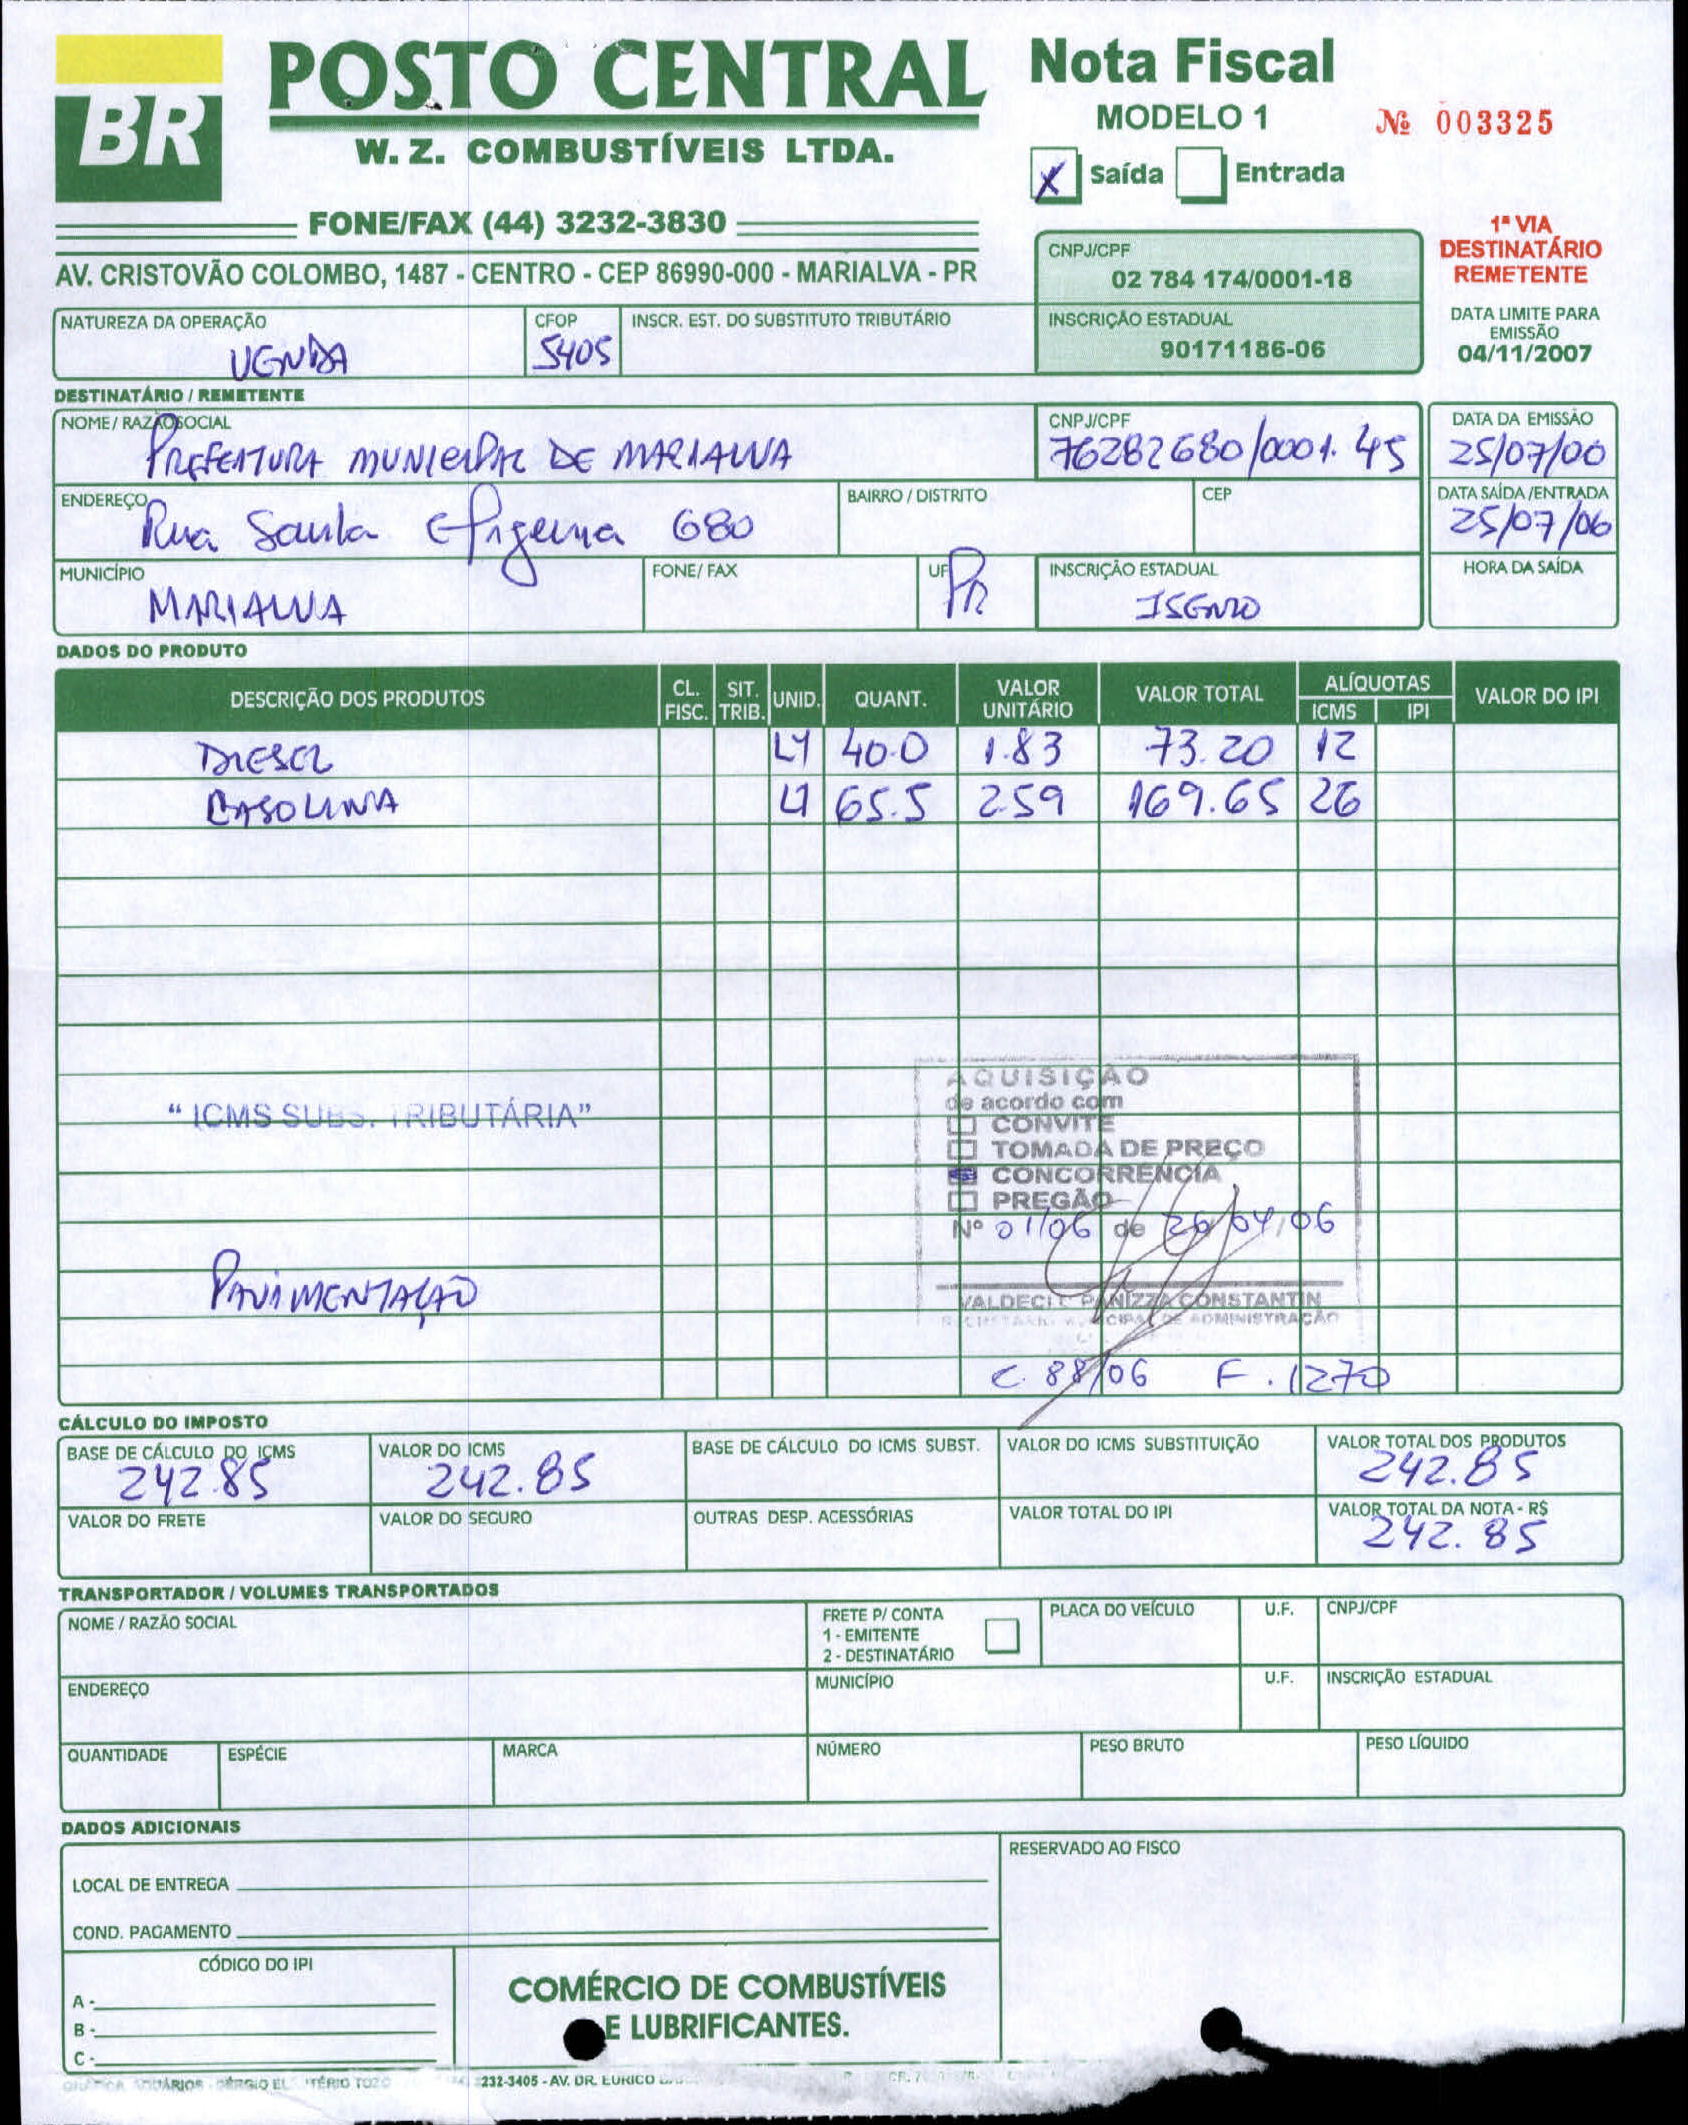 BR
POSTO CENTRAL
W. Z. COMBUSTÍVEIS LTDA.
FONE/FAX (44) 3232-3830
AV. CRISTOVÃO COLOMBO, 1487 - CENTRO - CEP 86990-000 - MARIALVA - PR
Nota Fiscal
MODELO 1
Nº 003325
X Saída Entrada
1ª VIA
DESTINATÁRIO
REMETENTE
CNPJ/CPF
02 784 174/0001-18
INSCRIÇÃO ESTADUAL
90171186-06
DATA LIMITE PARA
EMISSÃO
04/11/2007
NATUREZA DA OPERAÇÃO
VENDA
CFOP
5405
INSCR. EST. DO SUBSTITUTO TRIBUTÁRIO
DESTINATÁRIO / REMETENTE
NOME / RAZÃO SOCIAL
PREFEITURA MUNICIPAL DE MARIALVA
CNPJ/CPF
76282680/0001.45
DATA DA EMISSÃO
25/07/06
ENDEREÇO
Rua Santa Efigenia 680
BAIRRO / DISTRITO
CEP
DATA SAÍDA /ENTRADA
25/07/06
MUNICÍPIO
MARIALVA
FONE/ FAX
UF
PR
INSCRIÇÃO ESTADUAL
ISENTO
HORA DA SAÍDA
DADOS DO PRODUTO
DESCRIÇÃO DOS PRODUTOS CL. FISC. SIT. TRIB. UNID. QUANT. VALOR UNITÁRIO VALOR TOTAL ALÍQUOTAS ICMS IPI VALOR DO IPI
DIESEL LT 40.0 1.83 73.20 12
GASOLINA LT 65.5 2.59 169.65 26
AQUISIÇÃO
de acordo com
CONVITE
TOMADA DE PREÇO
CONCORRÊNCIA
PREGÃO
Nº 01/06 de 20/04/06
VALDECIR PANIZZA CONSTANTIN
SECRETÁRIO MUNICIPAL DE ADMINISTRAÇÃO
" ICMS SUBS. TRIBUTÁRIA"
PAVIMENTAÇÃO
C. 88/06 F. 1270
CÁLCULO DO IMPOSTO
BASE DE CÁLCULO DO ICMS
242.85
VALOR DO ICMS
242.85
BASE DE CÁLCULO DO ICMS SUBST.
VALOR DO ICMS SUBSTITUIÇÃO
VALOR TOTAL DOS PRODUTOS
242.85
VALOR DO FRETE
VALOR DO SEGURO
OUTRAS DESP. ACESSÓRIAS
VALOR TOTAL DO IPI
VALOR TOTAL DA NOTA - R$
242.85
TRANSPORTADOR / VOLUMES TRANSPORTADOS
NOME / RAZÃO SOCIAL
FRETE P/ CONTA
1 - EMITENTE
2 - DESTINATÁRIO
PLACA DO VEÍCULO
U.F.
CNPJ/CPF
ENDEREÇO
MUNICÍPIO
U.F.
INSCRIÇÃO ESTADUAL
QUANTIDADE
ESPÉCIE
MARCA
NÚMERO
PESO BRUTO
PESO LÍQUIDO
DADOS ADICIONAIS
LOCAL DE ENTREGA
COND. PAGAMENTO
RESERVADO AO FISCO
CÓDIGO DO IPI
A -
B -
C -
COMÉRCIO DE COMBUSTÍVEIS
E LUBRIFICANTES.
232-3405 - AV. DR. EURICO